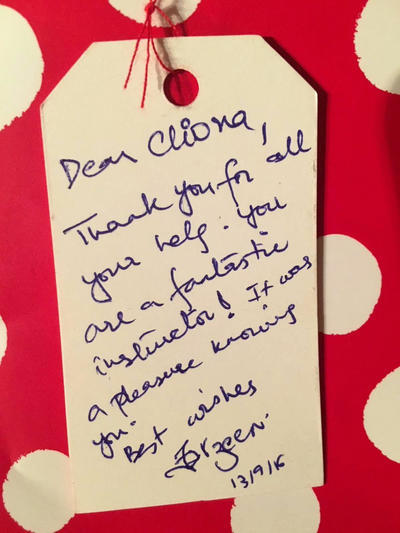 Dear Cliona,
Thank you for all
your help. You
are a fantastic
instructor! It was
a pleasure knowing
you.
Best wishes
13/9/16